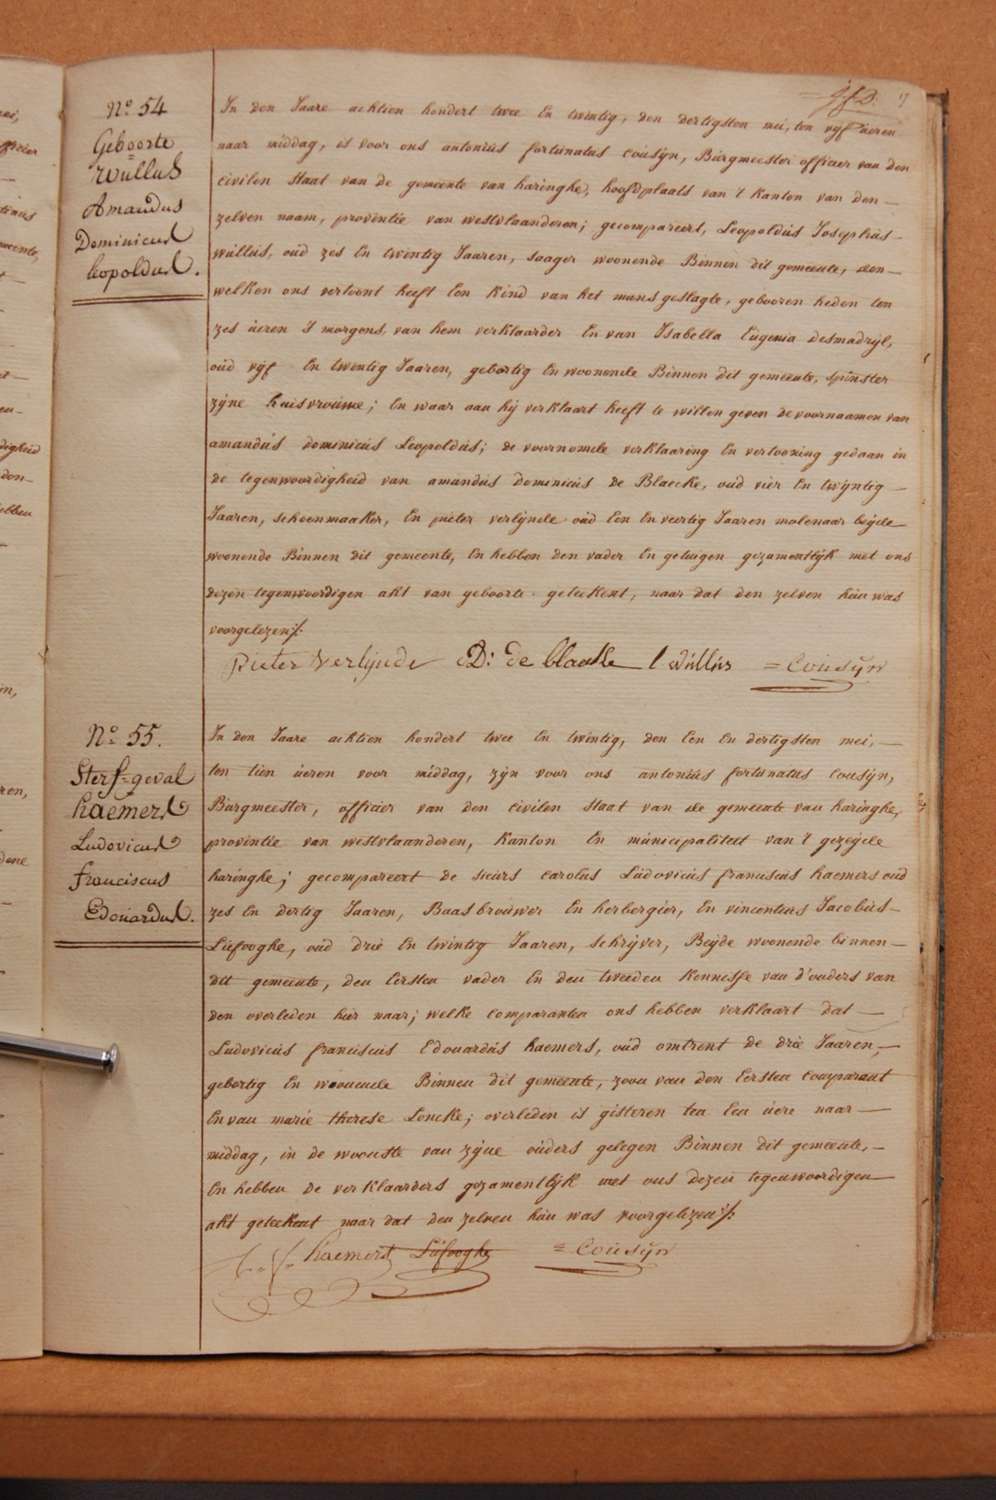 N.º 54
Geboorte
Wullus
Amandus
Dominicus
Leopoldus.
In den Jaare achtien hondert twee En twintig, den dertigsten mei, ten vijf ueren
naar middag, is voor ons antonius fortunatus cousijn, Burgmeester officier van den
civilen staat van de gemeente van haringhe, hoofdplaats van 't Kanton van den —
zelven naam, provintie van westvlaanderen; gecompareert, Leopoldus Josephus —
wullus, oud zes En twintig Jaaren, saager woonende Binnen dit gemeente, den —
welken ons vertoont heeft Een Kind van het mans geslagte, gebooren heden ten
zes ueren 's morgens, van hem verklaarder En van Isabella Eugenia desmadryl,
oud vyf En twintig Jaaren, gebortig En woonende Binnen dit gemeente, spinster
zyne huisvrouwe; En waar aan hij verklaart heeft te willen geven de voornaamen van
amandus dominicus Leopoldus; de voornomde verklaaring En vertooning gedaan in
de tegenwoordigheid van amandus dominicus de Blaecke, oud vier En twyntig —
Jaaren, schoenmaaker, En pieter verlynde oud Een En veertig Jaaren molenaar beyde
woonende Binnen dit gemeente, En hebben den vader En getuigen gezamentlyk met ons
dezen tegenwoordigen akt van geboorte geteekent, naar dat den zelven hun was
voorgelezen ./.
Pieter Verlijnde D: de blaecke l wúllús = Cousijn
N.º 55.
Sterf-geval
haemers
Ludovicus
franciscus
Edouardus.
In den Jaare achtien hondert twee En twintig, den Een En dertigsten mei, —
ten tien ueren voor middag, zyn voor ons antonius fortunatus cousijn,
Burgmeester, officier van den civilen staat van de gemeente van haringhe,
provintie van westvlaanderen, Kanton En municipaliteit van 't gezegde
haringhe; gecompareert de sieurs carolus Ludovicus franciscus haemers oud
zes En dertig Jaaren, Baasbrouwer En herbergier, En vincentius Jacobus —
Liefooghe, oud drie En twintig Jaaren, schryver, Beyde woonende binnen —
dit gemeente, den Eersten vader En den tweeden Kennesse van d'ouders van
den overleden hier naar; welke comparanten ons hebben verklaart dat —
Ludovicus franciscus Edouardus haemers, oud omtrent de drie Jaaren, —
gebortig En woonende Binnen dit gemeente, zoon van den Eersten comparant
En van marie therese Loncke; overleden is gisteren ten Een uere naar —
middag, in de woonste van zyne ouders gelegen Binnen dit gemeente, —
En hebben de verklaarders gezamentlyk met ons dezen tegenwoordigen
akt geteekent naar dat den zelven hun was voorgelezen ./.
haemers Liefooghe = Cousijn